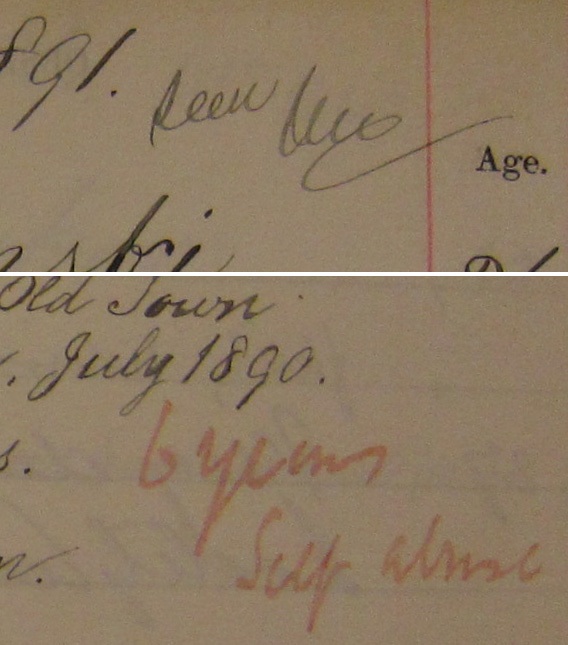 891. Seen
Age.
Old Town
July 1890.
s.
6 years
n.
Self abuse